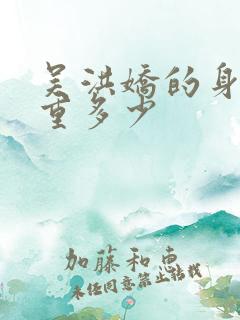 吴洪嬌的身
重多少
加藤和惠
未经同意禁止转载